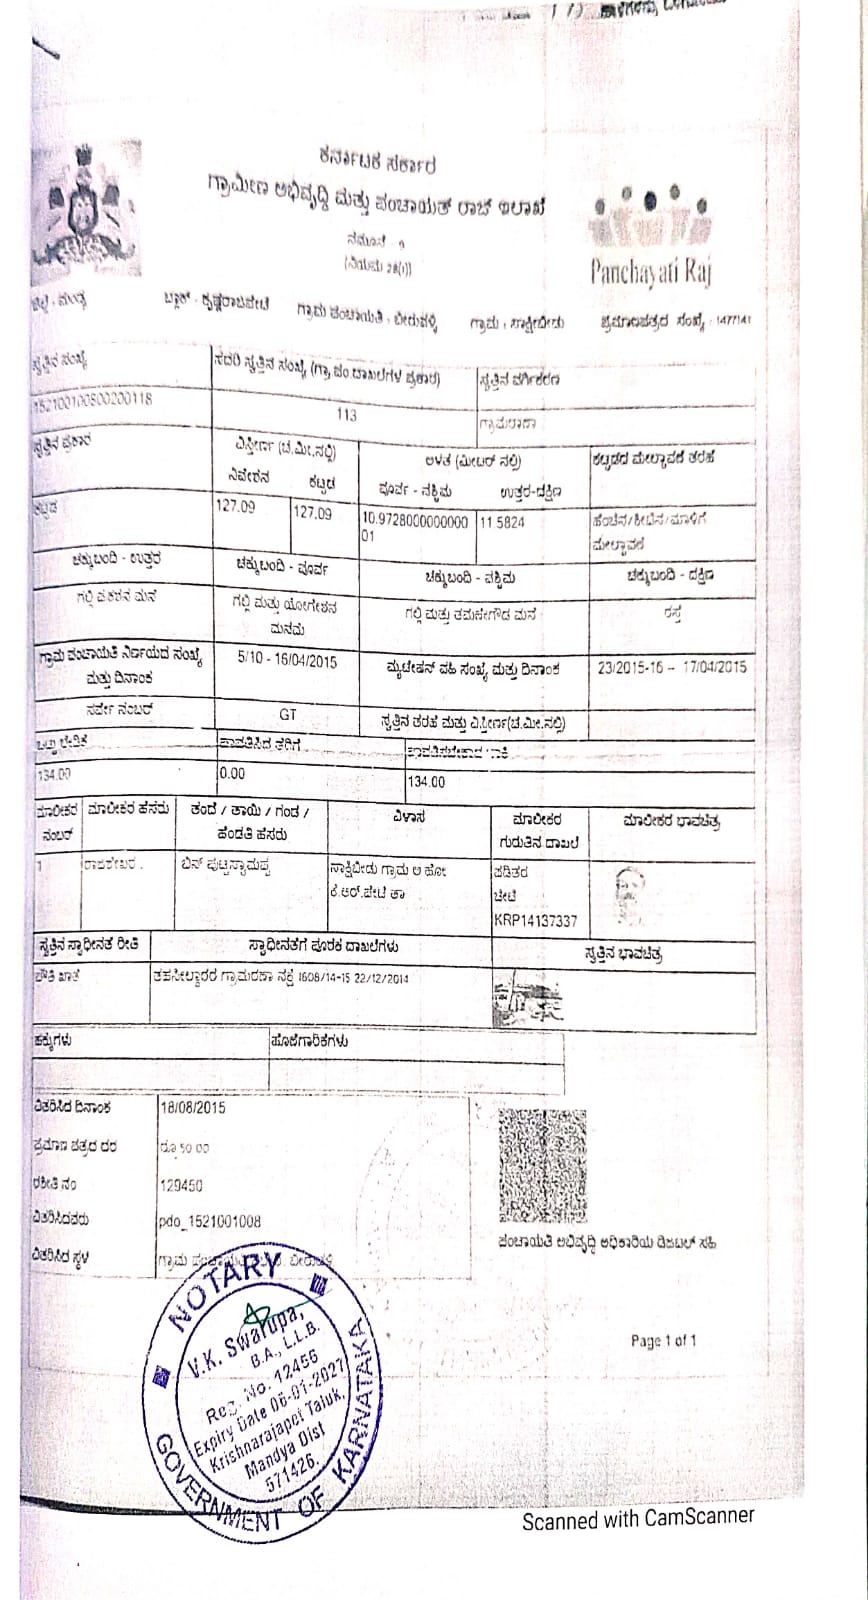 ಕರ್ನಾಟಕ ಸರ್ಕಾರ
ಗ್ರಾಮೀಣ ಅಭಿವೃದ್ಧಿ ಮತ್ತು ಪಂಚಾಯತ್ ರಾಜ್ ಇಲಾಖೆ
ನಮೂನೆ - 9
(ನಿಯಮ 28(1))
Panchayati Raj
ಜಿಲ್ಲೆ - ಮಂಡ್ಯ ಬ್ಲಾಕ್ - ಕೃಷ್ಣರಾಜಪೇಟೆ ಗ್ರಾಮ ಪಂಚಾಯತಿ : ಬೀರುವಳ್ಳಿ ಗ್ರಾಮ : ಸಾಕ್ಷೀಬೀಡು ಪ್ರಮಾಣಪತ್ರದ ಸಂಖ್ಯೆ : 1477141
ಸ್ವತ್ತಿನ ಸಂಖ್ಯೆ ಸದರಿ ಸ್ವತ್ತಿನ ಸಂಖ್ಯೆ (ಗ್ರಾ.ಪಂ.ದಾಖಲೆಗಳ ಪ್ರಕಾರ) ಸ್ವತ್ತಿನ ವರ್ಗೀಕರಣ
152100100800200118 113 ಗ್ರಾಮಠಾಣಾ
ಸ್ವತ್ತಿನ ಪ್ರಕಾರ ವಿಸ್ತೀರ್ಣ (ಚ.ಮೀ.ನಲ್ಲಿ) ಅಳತೆ (ಮೀಟರ್ ನಲ್ಲಿ) ಕಟ್ಟಡದ ಮೇಲ್ಛಾವಣಿ ತರಹೆ
ನಿವೇಶನ ಕಟ್ಟಡ ಪೂರ್ವ - ಪಶ್ಚಿಮ ಉತ್ತರ-ದಕ್ಷಿಣ
ಕಟ್ಟಡ 127.09 127.09 10.9728000000000 11.5824 ಹೆಂಚಿನ/ಶೀಟಿನ/ಮಾಳಿಗೆ
01 ಮೇಲ್ಛಾವಣಿ
ಚಕ್ಕುಬಂದಿ - ಉತ್ತರ ಚಕ್ಕುಬಂದಿ - ಪೂರ್ವ ಚಕ್ಕುಬಂದಿ - ಪಶ್ಚಿಮ ಚಕ್ಕುಬಂದಿ - ದಕ್ಷಿಣ
ಗಲ್ಲಿ ಮನೆ ಗಲ್ಲಿ ಮತ್ತು ಯೋಗೇಶನ ಗಲ್ಲಿ ಮತ್ತು ತಮಣೇಗೌಡ ಮನೆ ರಸ್ತೆ
ಮನಮೆ
ಗ್ರಾಮ ಪಂಚಾಯತಿ ನಿರ್ಣಯದ ಸಂಖ್ಯೆ 5/10 - 16/04/2015 ಮ್ಯುಟೇಷನ್ ವಹಿ ಸಂಖ್ಯೆ ಮತ್ತು ದಿನಾಂಕ 23/2015-16 -- 17/04/2015
ಮತ್ತು ದಿನಾಂಕ
ಸರ್ವೇ ನಂಬರ್ GT ಸ್ವತ್ತಿನ ತರಹೆ ಮತ್ತು ವಿಸ್ತೀರ್ಣ(ಚ.ಮೀ.ನಲ್ಲಿ)
ಒಟ್ಟು ಬೇಡಿಕೆ ಪಾವತಿಸಿದ ತೆರಿಗೆ ಪಾವತಿಸಬೇಕಾದ ಬಾಕಿ
134.00 0.00 134.00
ಮಾಲೀಕರ ಮಾಲೀಕರ ಹೆಸರು ತಂದೆ / ತಾಯಿ / ಗಂಡ / ವಿಳಾಸ ಮಾಲೀಕರ ಮಾಲೀಕರ ಭಾವಚಿತ್ರ
ನಂಬರ್ ಹೆಂಡತಿ ಹೆಸರು ಗುರುತಿನ ದಾಖಲೆ
1 ರಾಜಶೇಖರ . ಬಿನ್ ಪುಟ್ಟಸ್ವಾಮಪ್ಪ ಸಾಕ್ಷಿಬೀಡು ಗ್ರಾಮ ಅ ಹೋ ಪಡಿತರ
ಕೆ.ಆರ್.ಪೇಟೆ ತಾ ಚೀಟಿ
KRP14137337
ಸ್ವತ್ತಿನ ಸ್ವಾಧೀನತೆ ರೀತಿ ಸ್ವಾಧೀನತೆಗೆ ಪೂರಕ ದಾಖಲೆಗಳು ಸ್ವತ್ತಿನ ಭಾವಚಿತ್ರ
ಪೌತಿ ಖಾತೆ ತಹಸೀಲ್ದಾರರ ಗ್ರಾಮಠಾಣಾ ನಕ್ಷೆ 1608/14-15 22/12/2014
ಹಕ್ಕುಗಳು ಹೊಣೆಗಾರಿಕೆಗಳು
ವಿತರಿಸಿದ ದಿನಾಂಕ 18/08/2015
ಪ್ರಮಾಣ ಪತ್ರದ ದರ ರೂ 50.00
ರಶೀತಿ ನಂ 129450
ವಿತರಿಸಿದವರು pdo_1521001008
ವಿತರಿಸಿದ ಸ್ಥಳ ಗ್ರಾಮ ಬೀರುವಳ್ಳಿ
ಪಂಚಾಯತಿ ಅಭಿವೃದ್ಧಿ ಅಧಿಕಾರಿಯ ಡಿಜಿಟಲ್ ಸಹಿ
Page 1 of 1
NOTARY
V.K. Swarupa,
B.A., L.L.B.
Reg. No. 12456
Expiry Date 06-01-2027
Krishnarajapet Taluk,
Mandya Dist
571426.
GOVERNMENT OF KARNATAKA
Scanned with CamScanner